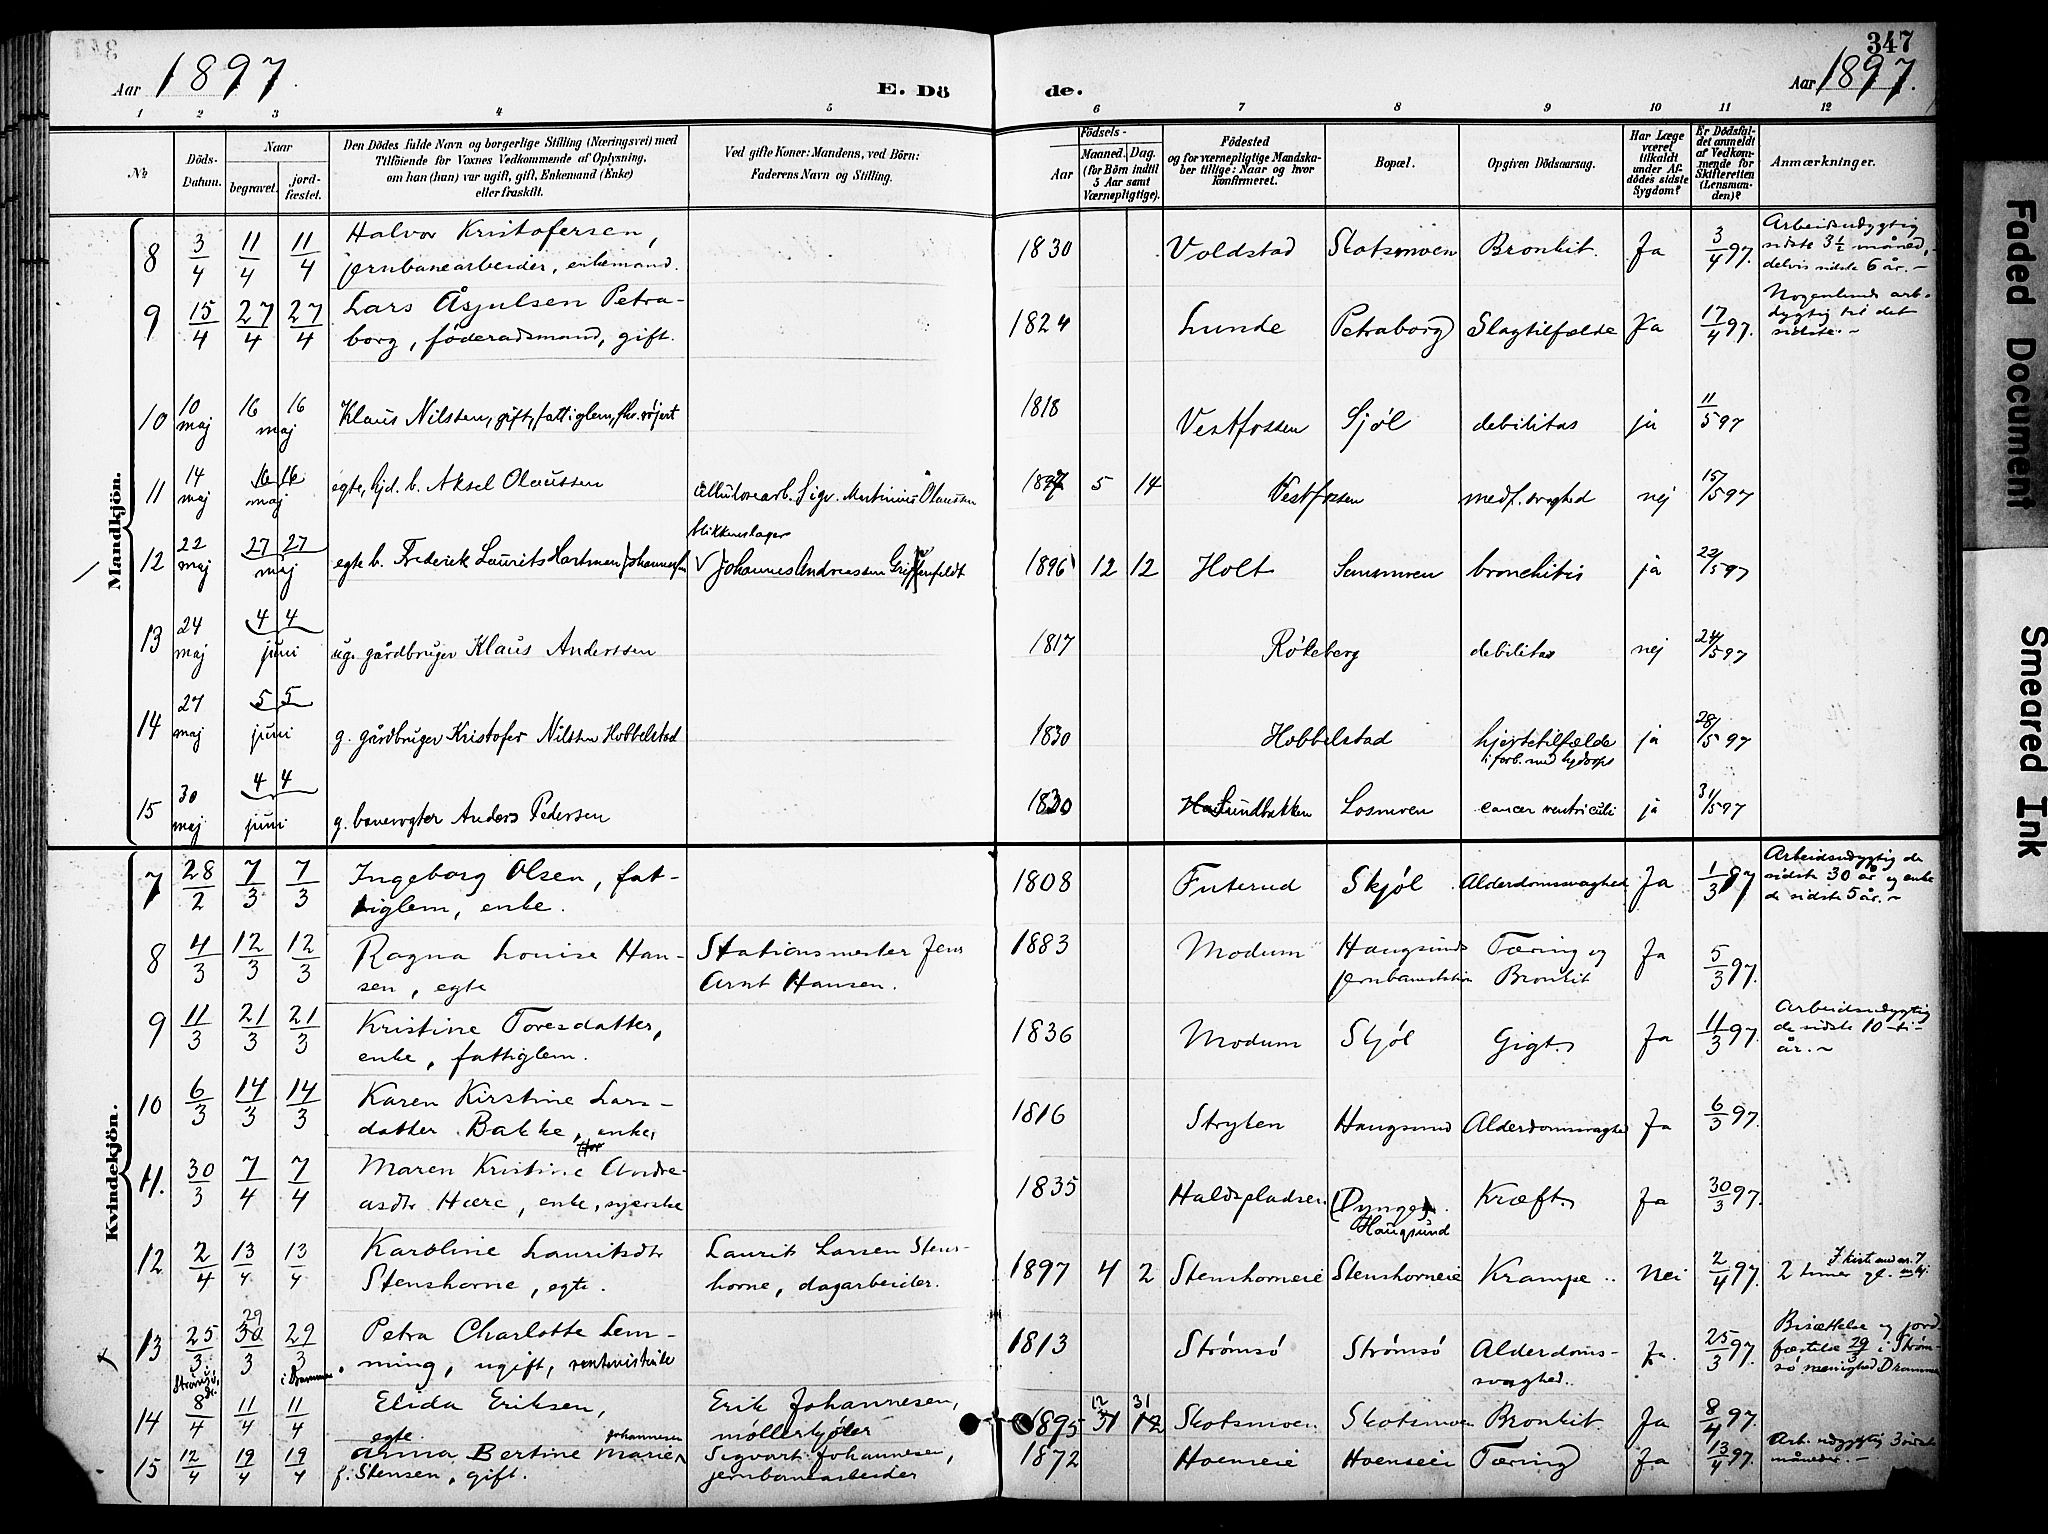 347
Aar 1897. E. Dö de. Aar 1897.
1 2 3 4 5 6 7 8 9 10 11 12
No
Döds-Datum.
Naar
begravet.
jord-fæstet.
Den Dödes fulde Navn og borgerlige Stilling (Næringsvei) med
Tilföiende for Voxnes Vedkommende af Oplysning,
om han (hun) var ugift, gift, Enkemand (Enke)
eller fraskilt.
Ved gifte Koner: Mandens, ved Börn:
Faderens Navn og Stilling.
Födsels-
Aar
Maaned. Dag.
(for Börn indtil
5 Aar samt
Værnepligtige).
Födested
og for værnepligtige Mandska-
ber tillige: Naar og hvor
konfirmeret.
Bopæl.
Opgiven Dödsaarsag.
Har Læge
været
tilkaldt
under Af-
dödes sidste
Sygdom?
Er Dödsfal-
det anmeldt
af Vedkom-
mende for
Skifteretten
(Lensman-
den)?
Anmærkninger.
Mandkjön.
8 3/4 11/4 11/4 Halvor Kristofersen, 1830 Voldstad Skotsmoen Bronkit. Ja 3/4 97. Arbeidsudygtig
jernbanearbeider, enkemand. sidste 3 1/2 måned,
delvis sidste 6 år. -
9 15/4 27/4 27/4 Lars Åsjulsen Petra- 1824 Lunde Petraborg Slagtilfælde Ja 17/4 97. Nogenlunde arb.
borg, föderadsmand, gift. dygtig til det
sidste. -
10 10 maj 16 16 maj Klaus Nilsten, gift, fattiglem, 1818 Vestfossen Sjøl debilitas ja 11/5 97
11 14 maj 16 16 maj egte, b. Aksel Olaussen cellulosearb. Sigv. Martinius Olaussen 1897 5 14 Vestfossen medf. svaghed nej 15/5 97
blikkenslager
12 22 maj 27 27 maj egte b. Frederik Laurits Hartman Johannes Andreassen Griffenfeldt 1896 12 12 Holt Semsmoen bronchitis ja 22/5 97
13 24 maj 4 4 juni ug. gårdbruger Klaus Anderssen 1817 Røkeberg debilitas nej 24/5 97
14 27 maj 5 5 juni g. gårdbruger Kristofer Nilsten Hobbelstad 1830 Hobbelstad hjertetilfælde ja 28/5 97
i forb. med hydrops
15 30 maj 4 4 juni g. banevogter Anders Pedersen 1830 Sundbakken Losmoen cancer ventriculi ja 31/5 97
Kvindekjön.
7 28/2 7/3 7/3 Ingeborg Olsen, fat- 1808 Futerud Skjøl Alderdomssvaghed Ja 1/3 97 Arbeidsudygtig de
tiglem, enke. sidste 30 år og enke
de sidste 5 år. -
8 4/3 12/3 12/3 Ragna Louise Han- Stationsmester Jens 1883 Modum Haugsunds Tæring og Ja 5/3 97.
sen, egte Arnt Hansen. jernbanestation Bronkit
9 11/3 21/3 21/3 Kristine Toresdatter, 1836 Modum Skjøl Gigt. Ja 11/3 97. Arbeidsudygtig
enke, fattiglem. de sidste 10 ti-
år. -
10 6/3 14/3 14/3 Karen Kirstine Lars- 1816 Stryken Haugsund Alderdomssvaghed Ja 6/3 97.
datter Bakke, enke,
11. 30/3 7/4 7/4 Maren Kristine Andre- 1835 Haldspladsen (Dynge). Kræft. Ja 30/3 97.
asdtr Hære, enke, syerske Haugsund
12 2/4 13/4 13/4 Karoline Lauritsdtr Laurits Larsen Stens- 1897 4 2 Stenshorneie Stenshorneie Krampe. Nei 2/4 97. 2 timer gl.
Stenshorne, egte. horne, dagarbeider.
13 25/3 29 30/3 29/3 Petra Charlotte Lem- 1813 Strømsø Strømsø Alderdoms- Ja. 25/3 97. Bisættelse og jord-
ming, ugift, svaghed. fæstelse 29/3 i Strøm-
i Drammen. sø menighed Drammen
14 8/4 11/4 11/4 Elida Eriksen, Erik Johannesen, 1895 12 31 Skotsmoen Skotsmoen Bronkit. Ja 8/4 97.
egte. møllerkjører
15 12/4 19/4 19/4 Anna Bertine Marie Johannesen Sigvart Johannesen, 1872 Hoenseie Hoenseie Tæring Ja 13/4 97. Arb. udygtig 3 sidste
f. Stensen, gift. jernbanearbeider måneder. -
Faded Document
Smeared Ink